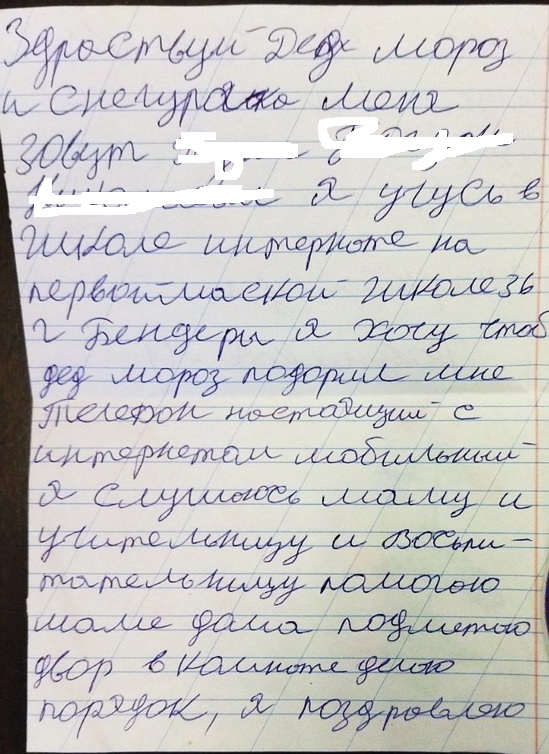 Здраствуй Дед мороз
и снегурачка меня
зовут
Я учусь в
школе интернате на
первоймаской школе 36
г Бендеры я хочу чтоб
дед мороз подарил мне
телефон настаищий с
интернетам мобильный
я слушаюсь маму и
учительницу и воспи-
тательницу помогою
маме дома подметою
двор в комноте делою
порядок, я поздровлею